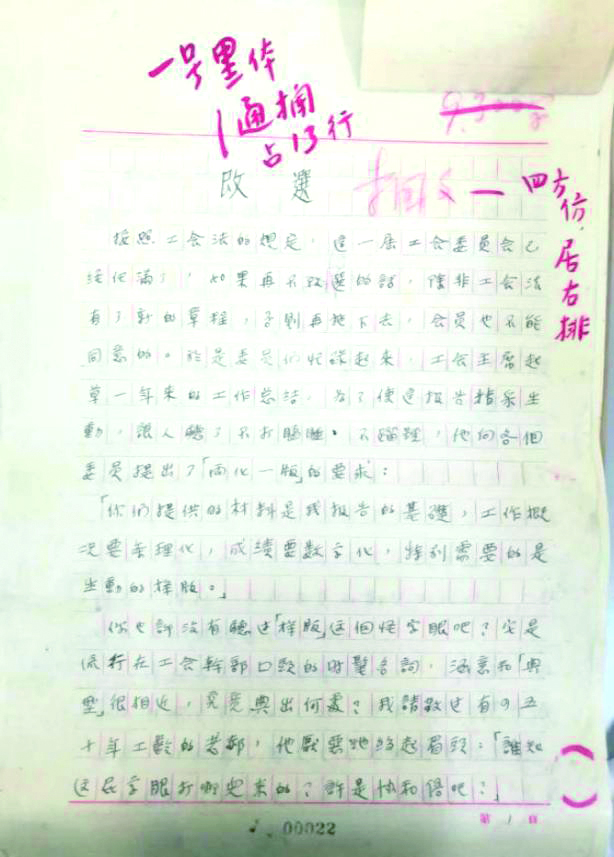 一号黑体
通栏
占13行
改選
李国文
四方仿，居右排
按照工会法的規定，這一届工会委員会已
经任满了，如果再不改選的話，除非工会法
有了新的草程，否則再拖下去，会員也不能
同意的。於是委員们忙碌起来，工会主席起
草一年来的工作总结，为了使這报告精采生
動，讓人聽了不打瞌睡，不蹓蹥，他向各個
委員提出了「两化一版」的要求：
「你们提供的材料是我报告的基礎，工作概
况要条理化，成績要数字化，特别需要的是
生動的样版。」
你也許没有聽过「样版」这個怪字眼吧？它是
流行在工会幹部口頭的时髦名詞，涵意和「典
型」很相近，究竟典出何處？我請教过有四五
十年工齡的老郝，他厭惡地皱起眉頭：「誰知
这屁字眼打哪兒来的？許是协和語吧？」
第1頁
00022